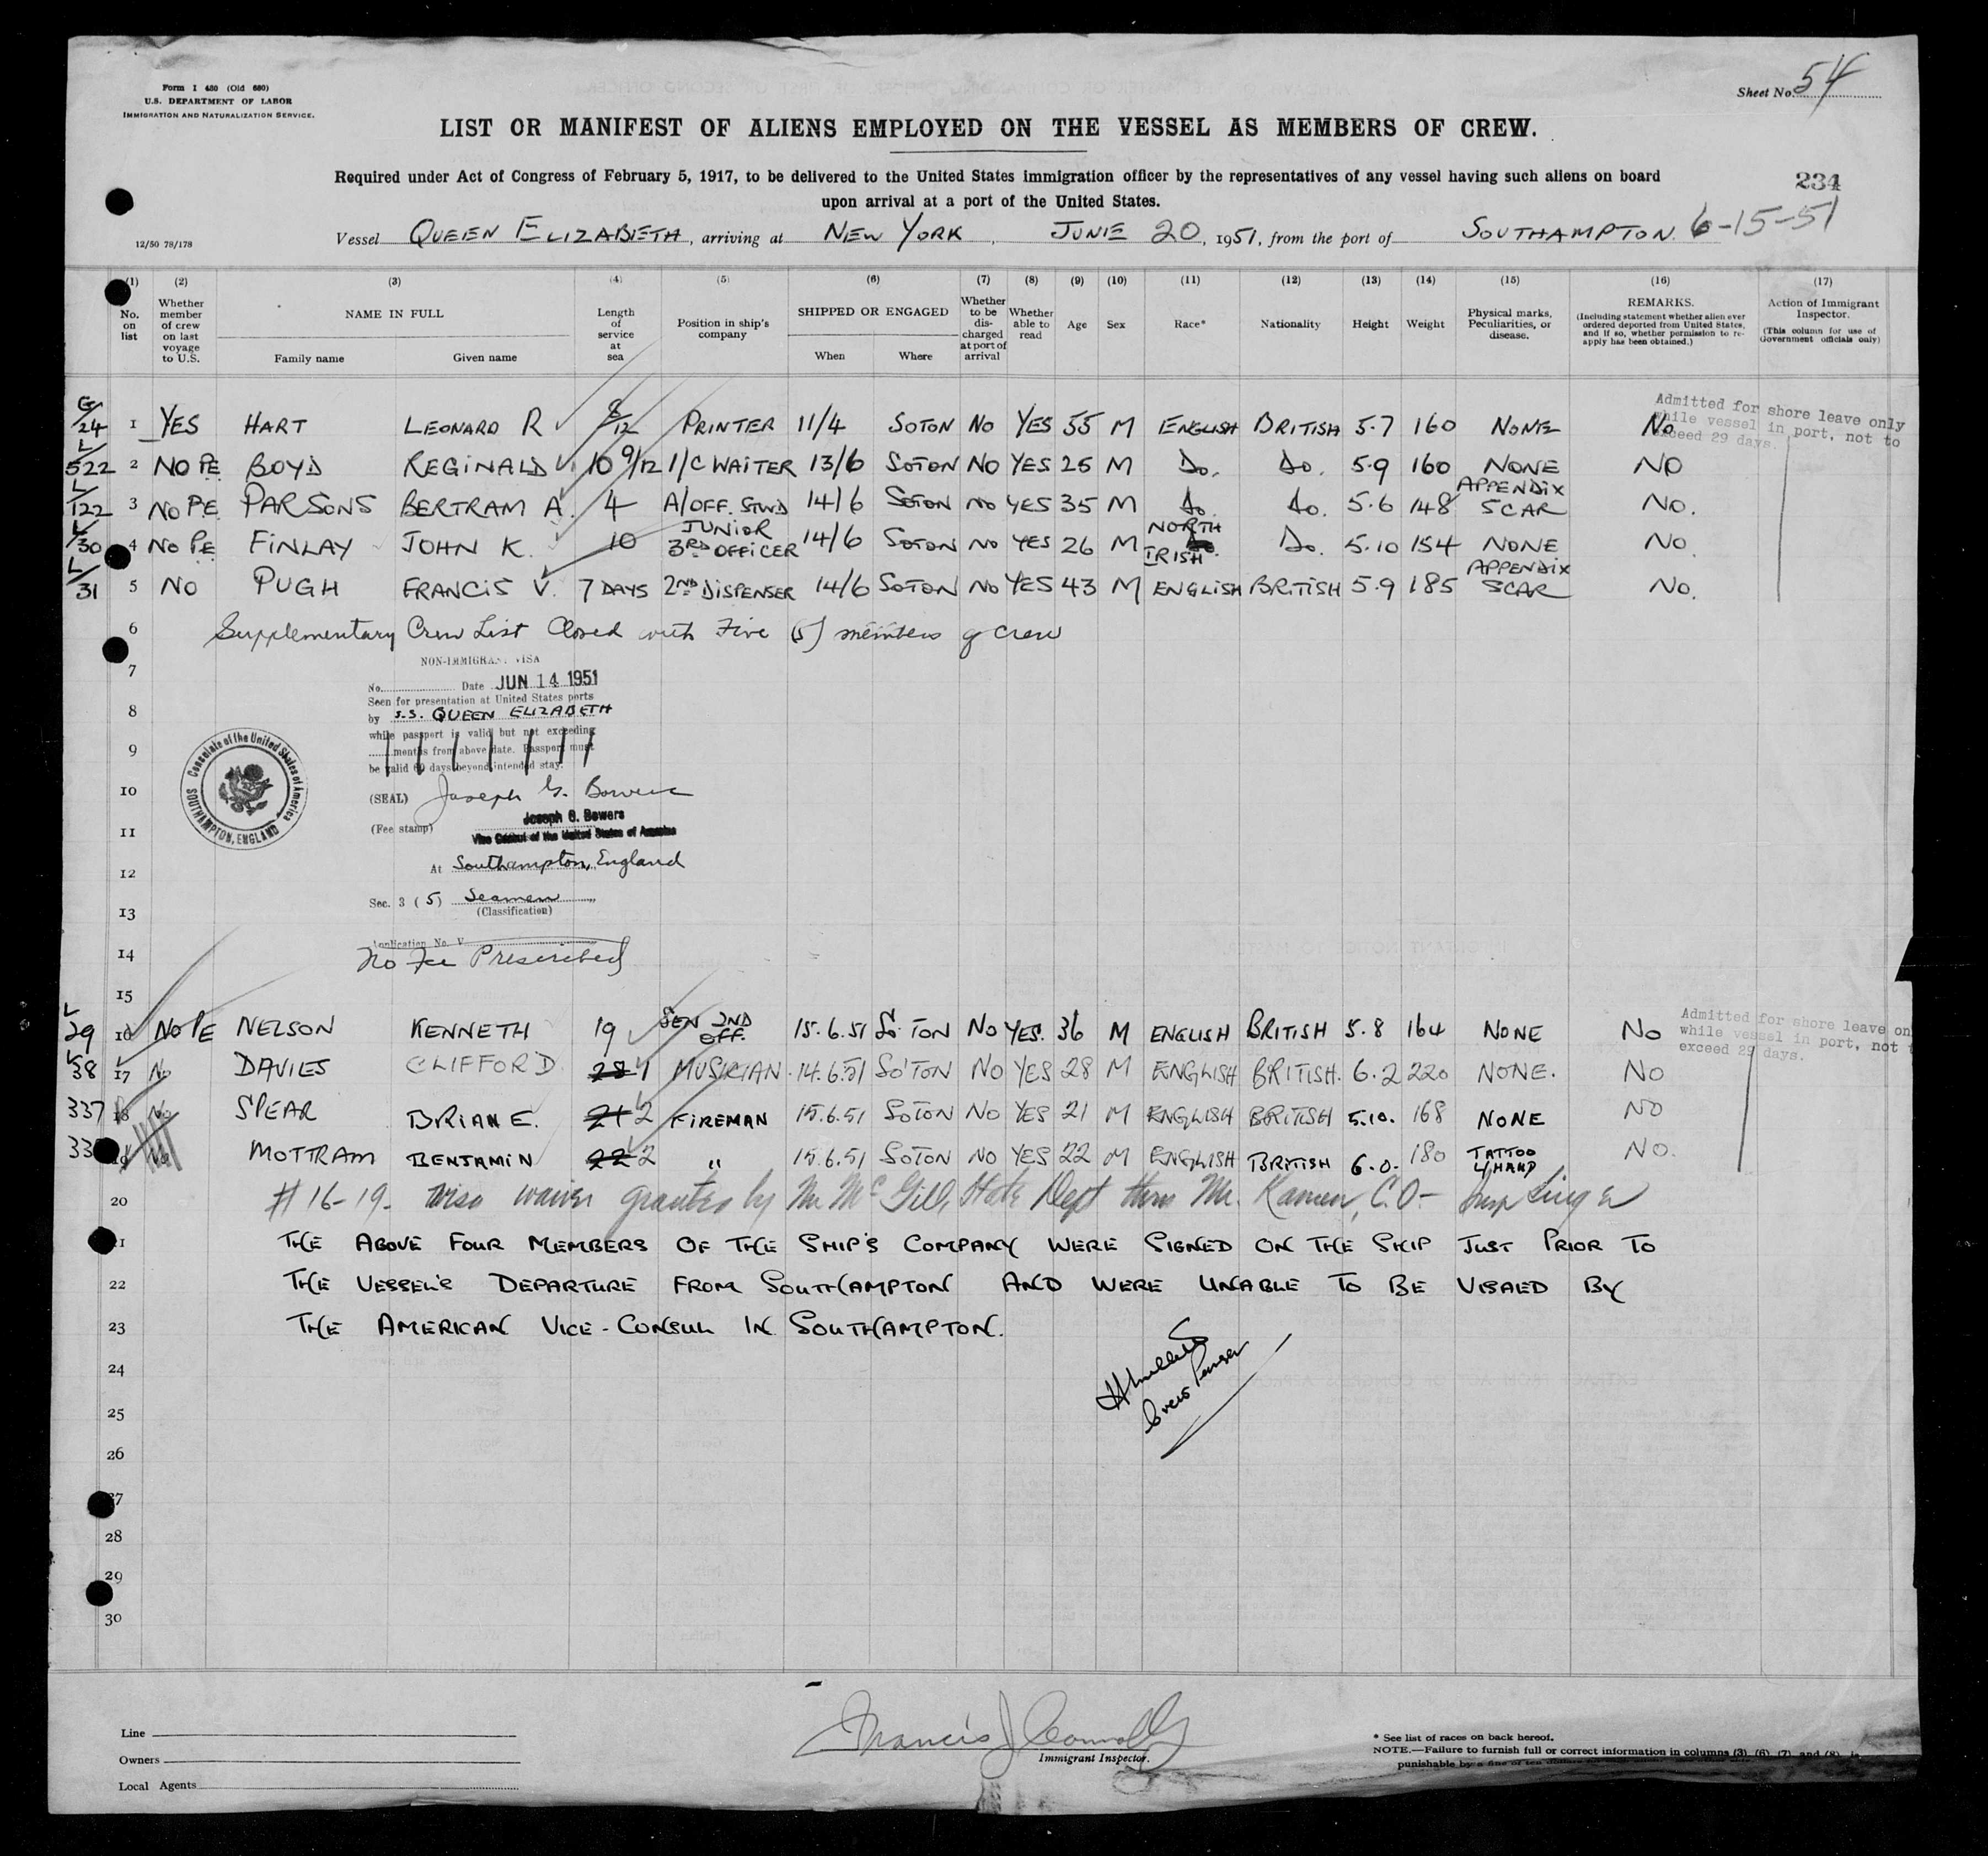 Form I 480 (Old 680)
U.S. DEPARTMENT OF LABOR
IMMIGRATION AND NATURALIZATION SERVICE.
Sheet No. 54
LIST OR MANIFEST OF ALIENS EMPLOYED ON THE VESSEL AS MEMBERS OF CREW.
Required under Act of Congress of February 5, 1917, to be delivered to the United States immigration officer by the representatives of any vessel having such aliens on board
upon arrival at a port of the United States.
234
12/50 78/178
Vessel QUEEN ELIZABETH, arriving at NEW YORK, JUNE 20, 1951, from the port of SOUTHAMPTON. 6-15-51
(1) (2) (3) (4) (5) (6) (7) (8) (9) (10) (11) (12) (13) (14) (15) (16) (17)
No. on list
Whether member of crew on last voyage to U.S.
NAME IN FULL
Family name
Given name
Length of service at sea
Position in ship's company
SHIPPED OR ENGAGED
When
Where
Whether to be discharged at port of arrival
Whether able to read
Age
Sex
Race*
Nationality
Height
Weight
Physical marks, Peculiarities, or disease.
REMARKS.
(Including statement whether alien ever ordered deported from United States, and if so, whether permission to re-apply has been obtained.)
Action of Immigrant Inspector.
(This column for use of Government officials only)
Admitted for shore leave only
while vessel in port, not to
exceed 29 days.
G/24 1 YES HART LEONARD R 8/12 PRINTER 11/4 SOTON NO YES 55 M ENGLISH BRITISH 5.7 160 NONE No
L/522 2 NO PE BOYD REGINALD 10 9/12 1/C WAITER 13/6 SOTON NO YES 25 M Do. Do. 5.9 160 NONE NO
L/122 3 NO P.E. PARSONS BERTRAM A. 4 A/OFF. STWD 14/6 SOTON NO YES 35 M Do. Do. 5.6 148 APPENDIX SCAR NO.
L/30 4 NO PE FINLAY JOHN K. 10 JUNIOR 3RD OFFICER 14/6 SOTON NO YES 26 M NORTH IRISH Do. 5.10 154 NONE NO.
L/31 5 NO PUGH FRANCIS V. 7 DAYS 2ND DISPENSER 14/6 SOTON NO YES 43 M ENGLISH BRITISH 5.9 185 APPENDIX SCAR NO.
6 Supplementary Crew List Closed with Five (5) members of crew
7
NON-IMMIGRANT VISA
No. Date JUN 14 1951
Seen for presentation at United States ports
8
by S.S. QUEEN ELIZABETH
while passport is valid but not exceeding
9
months from above date. Passport must
be valid 60 days beyond intended stay.
Consulate of the United States of America
SOUTHAMPTON, ENGLAND
10
(SEAL) Joseph G. Bowers
Joseph G. Bowers
11
(Fee stamp) Vice Consul of the United States of America
12
At Southampton, England
Sec. 3 (5) Seamen
13
(Classification)
Application No. V
14
No Fee Prescribed
15
Admitted for shore leave on
while vessel in port, not t
exceed 29 days.
L/29 16 NO PE NELSON KENNETH 19 SEN 2ND OFF. 15.6.51 So.TON NO YES. 36 M ENGLISH BRITISH 5.8 164 NONE NO
38 17 No DAVIES CLIFFORD 28 1 MUSICIAN 14.6.51 SO'TON NO YES 28 M ENGLISH BRITISH. 6.2 220 NONE. NO
337 18 No SPEAR BRIAN E. 21 2 FIREMAN 15.6.51 SOTON NO YES 21 M ENGLISH BRITISH 5.10. 168 NONE NO
19 MOTTRAM BENJAMIN 22 2 " 15.6.51 SOTON NO YES 22 M ENGLISH BRITISH 6.0. 180 TATTOO L/HAND NO.
20 # 16-19- visa waiver granted by Mr. McGill, State Dept thru Mr. Kamen, C.O- Insp Singer
21 THE ABOVE FOUR MEMBERS OF THE SHIP'S COMPANY WERE SIGNED ON THE SHIP JUST PRIOR TO
22 THE VESSEL'S DEPARTURE FROM SOUTHAMPTON AND WERE UNABLE TO BE VISAED BY
23 THE AMERICAN VICE-CONSUL IN SOUTHAMPTON.
Crew Purser
24
25
26
27
28
29
30
Line
Owners
Local Agents
Francis J Connolly
Immigrant Inspector.
* See list of races on back hereof.
NOTE.—Failure to furnish full or correct information in columns (3), (6), (7), and (8), is
punishable by a fine of ten dollars